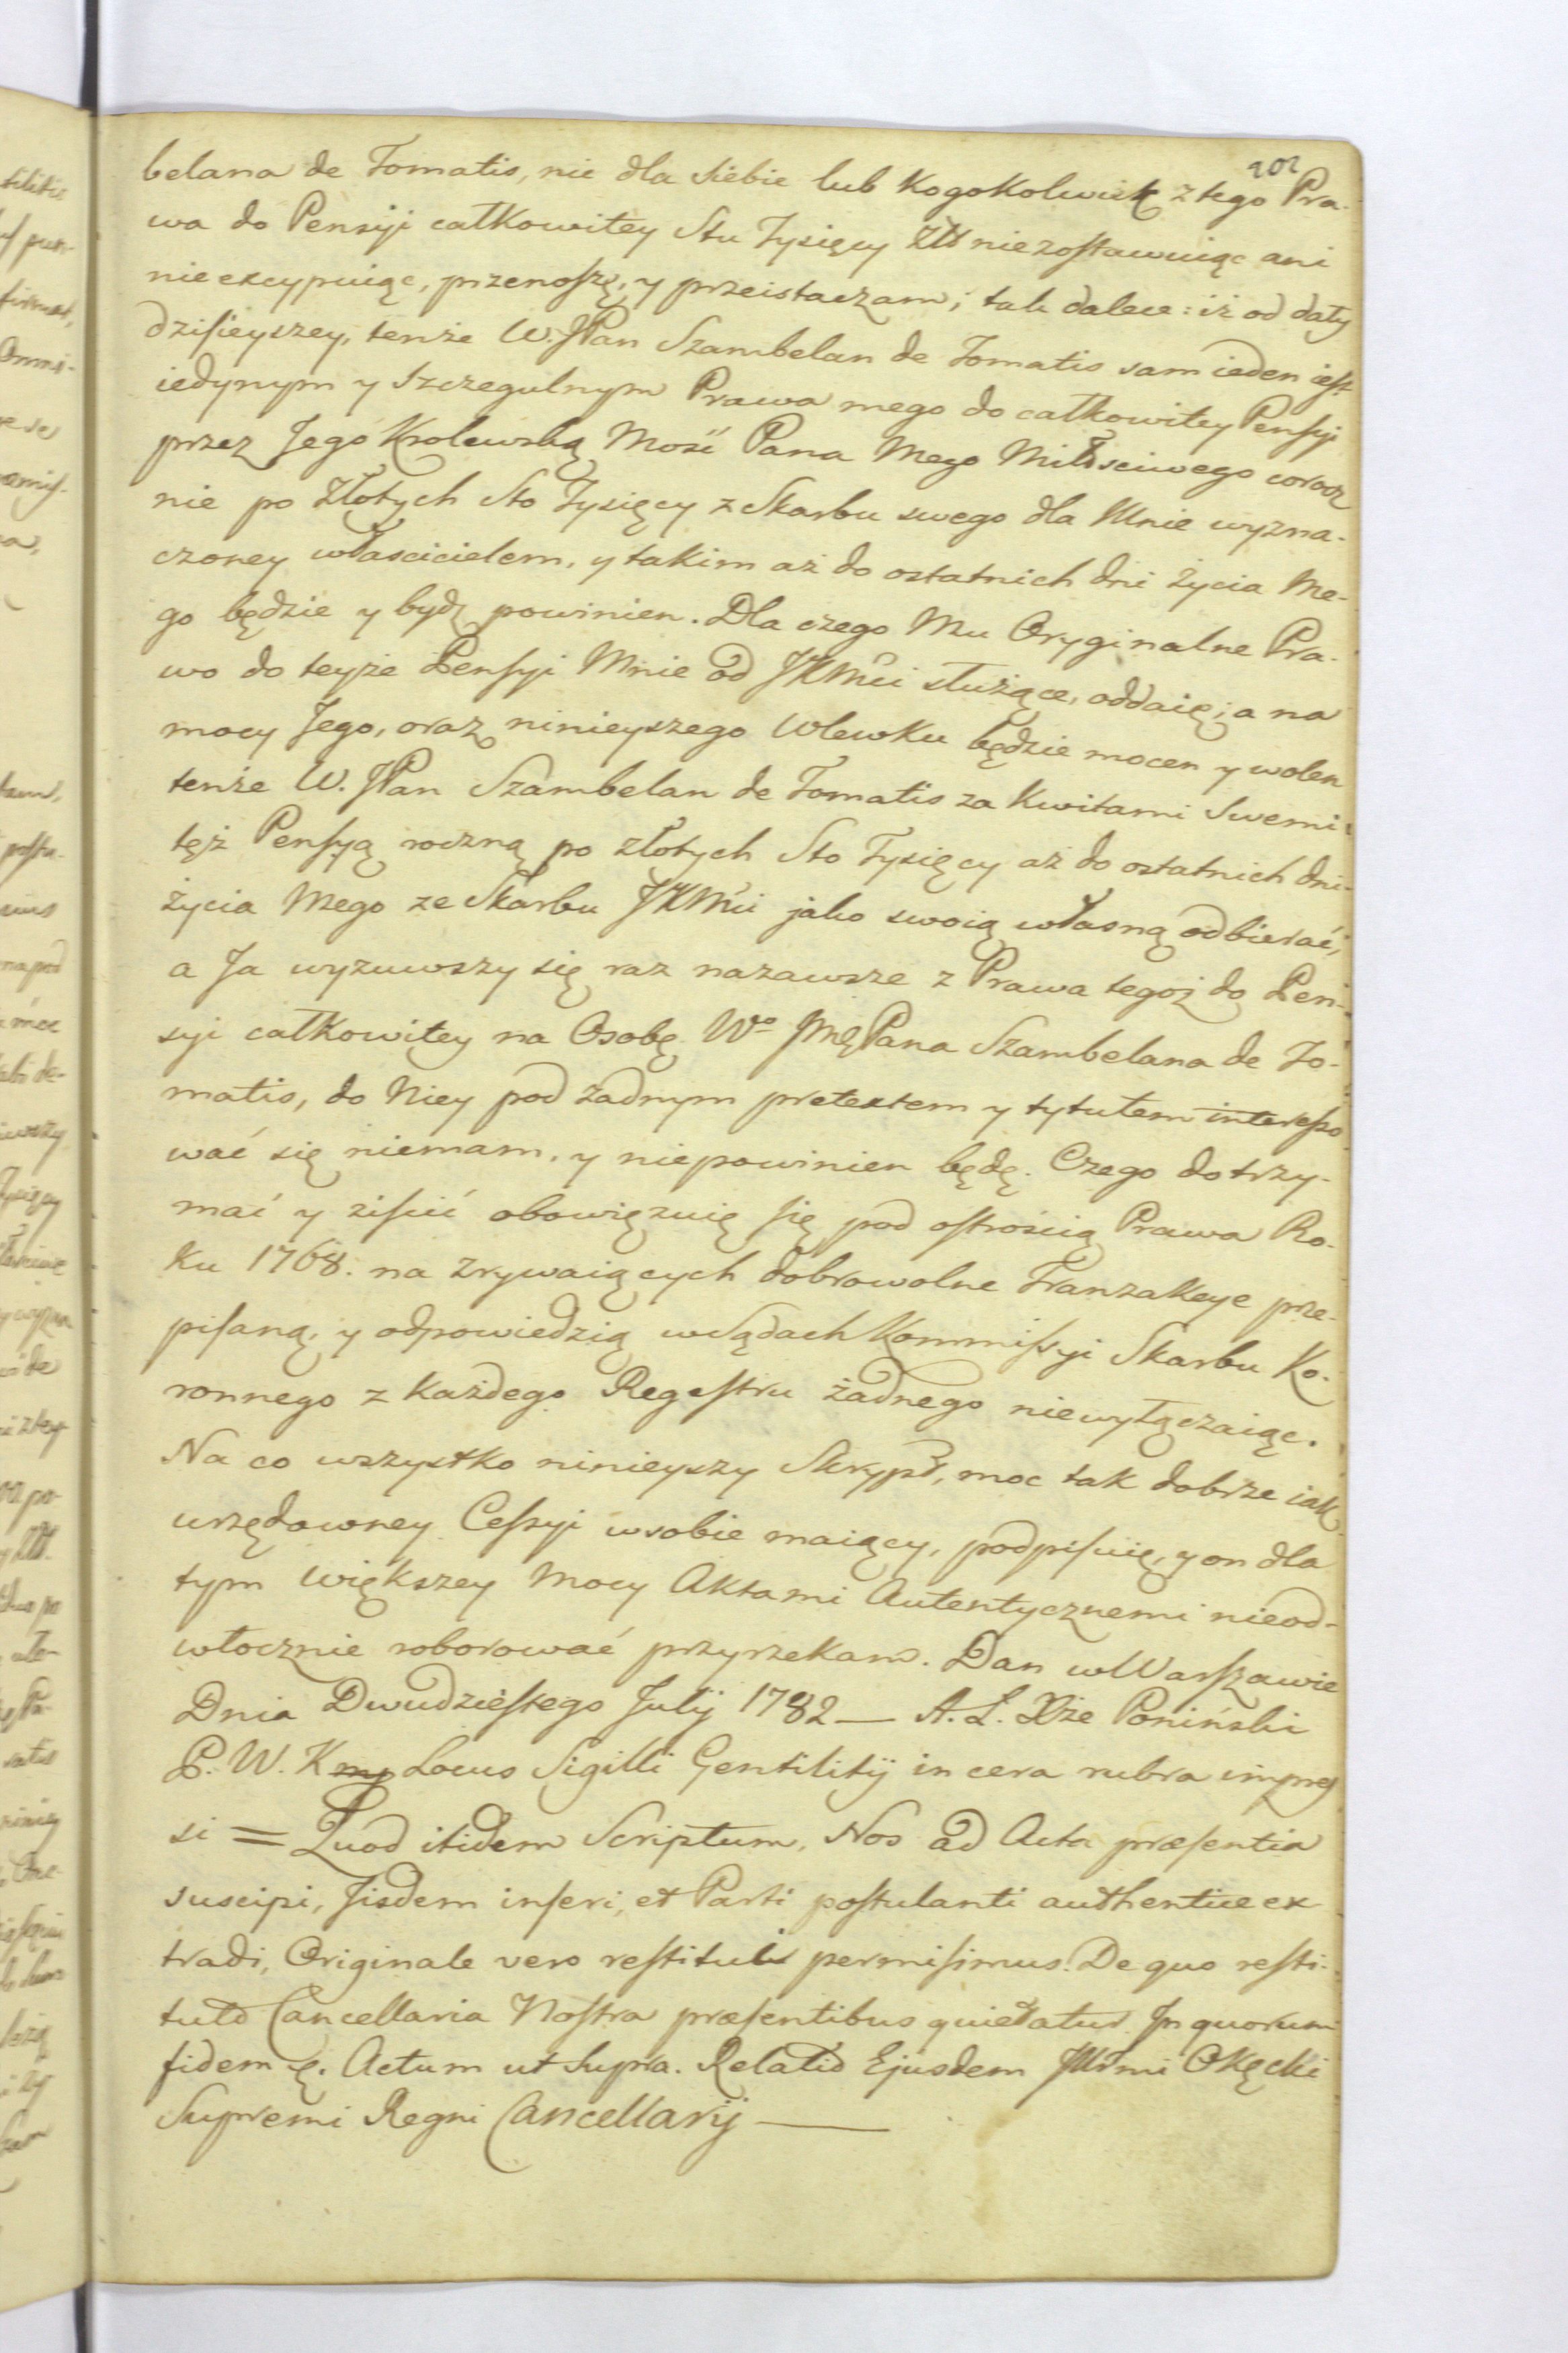 202
belana de Tomatis, nie dla Siebie lub kogokolwiek z tego Pra-
wa do Pensyi całkowitey Stu Tysięcy Złł niezostawuiąc ani
nieexcypuiąc, przenoszę, y przeistaczam; tak dalece: iż od daty
dzisieyszey, tenże W. JPan Szambelan de Tomatis sam ieden jest
iedynym y Szczegulnym Prawa mego do całkowitey Pensyi
przez Jego Krolewską Mość Pana Mego Miłosciwego corocz
nie po Złotych Sto Tysięcy z Skarbu swego dla Mnie wyzna-
czoney włascicielem, y takim aż do ostatnich dni Życia Me-
go będzie y bydz powinien. Dla czego Mu Oryginalne Pra-
wo do teyże Pensyi Mnie od JKMći służące, oddaię; a na
mocy Jego, oraz ninieyszego Wlewku będzie mocen y wolen
tenże W. JPan Szambelan de Tomatis za Kwitami Swemi
też Pensyą roczną po złotych Sto Tysięcy aż do ostatnich dni
życia Mego ze Skarbu JKMći jako swoią własną odbierać;
a Ja wyzuwszy się raz nazawsze z Prawa tegoż do Pen-
syi całkowitey na Osobę Wo JMę Pana Szambelana de To-
matis, do Niey pod żadnym pretextem y tytułem interesso
wać się niemam, y niepowinien będę. Czego dotrzy-
mać y ziścić obowięzuię się pod ostrością Prawa Ro-
ku 1768. na Zrywaiących dobrowolne Tranzakcye prze-
pisaną, y odpowiedzią w Sądach Kommissyi Skarbu Ko-
ronnego z każdego Regestru żadnego niewyłączaiąc.
Na co wszystko ninieyszy Skrypt, moc tak dobrze iak
urzędowney Cessyi w sobie maiący, podpisuię, y on dla
tym większey Mocy Aktami Autentycznemi nieod-
włocznie roborować przyrzekam. Dan w Warszawie
Dnia Dwudziestego Julij 1782 — A. L. Xże Poniński
P. W. K Locus Sigilli Gentilitij in cera rubra impres
si = Quod itidem Scriptum, Nos ad Acta præsentia
suscipi, Iisdem inseri, et Parti postulanti authentice ex
tradi, Originale vero restitui permisimus. De quo resti-
tuto Cancellaria Nostra præsentibus quietatur. In quorum
fidem ę. Actum ut Supra. Relatio Ejusdem Illmi Okęcki
Supremi Regni Cancellarij —